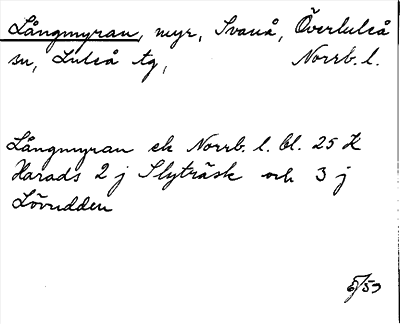 Långmyran, myr, Svanå, Överluleå
sn, Luleå tg, Norrb. l.
Långmyran ek Norrb. l. bl. 25 K
Harads 2 j Slyträsk och 3 j
Lövudden